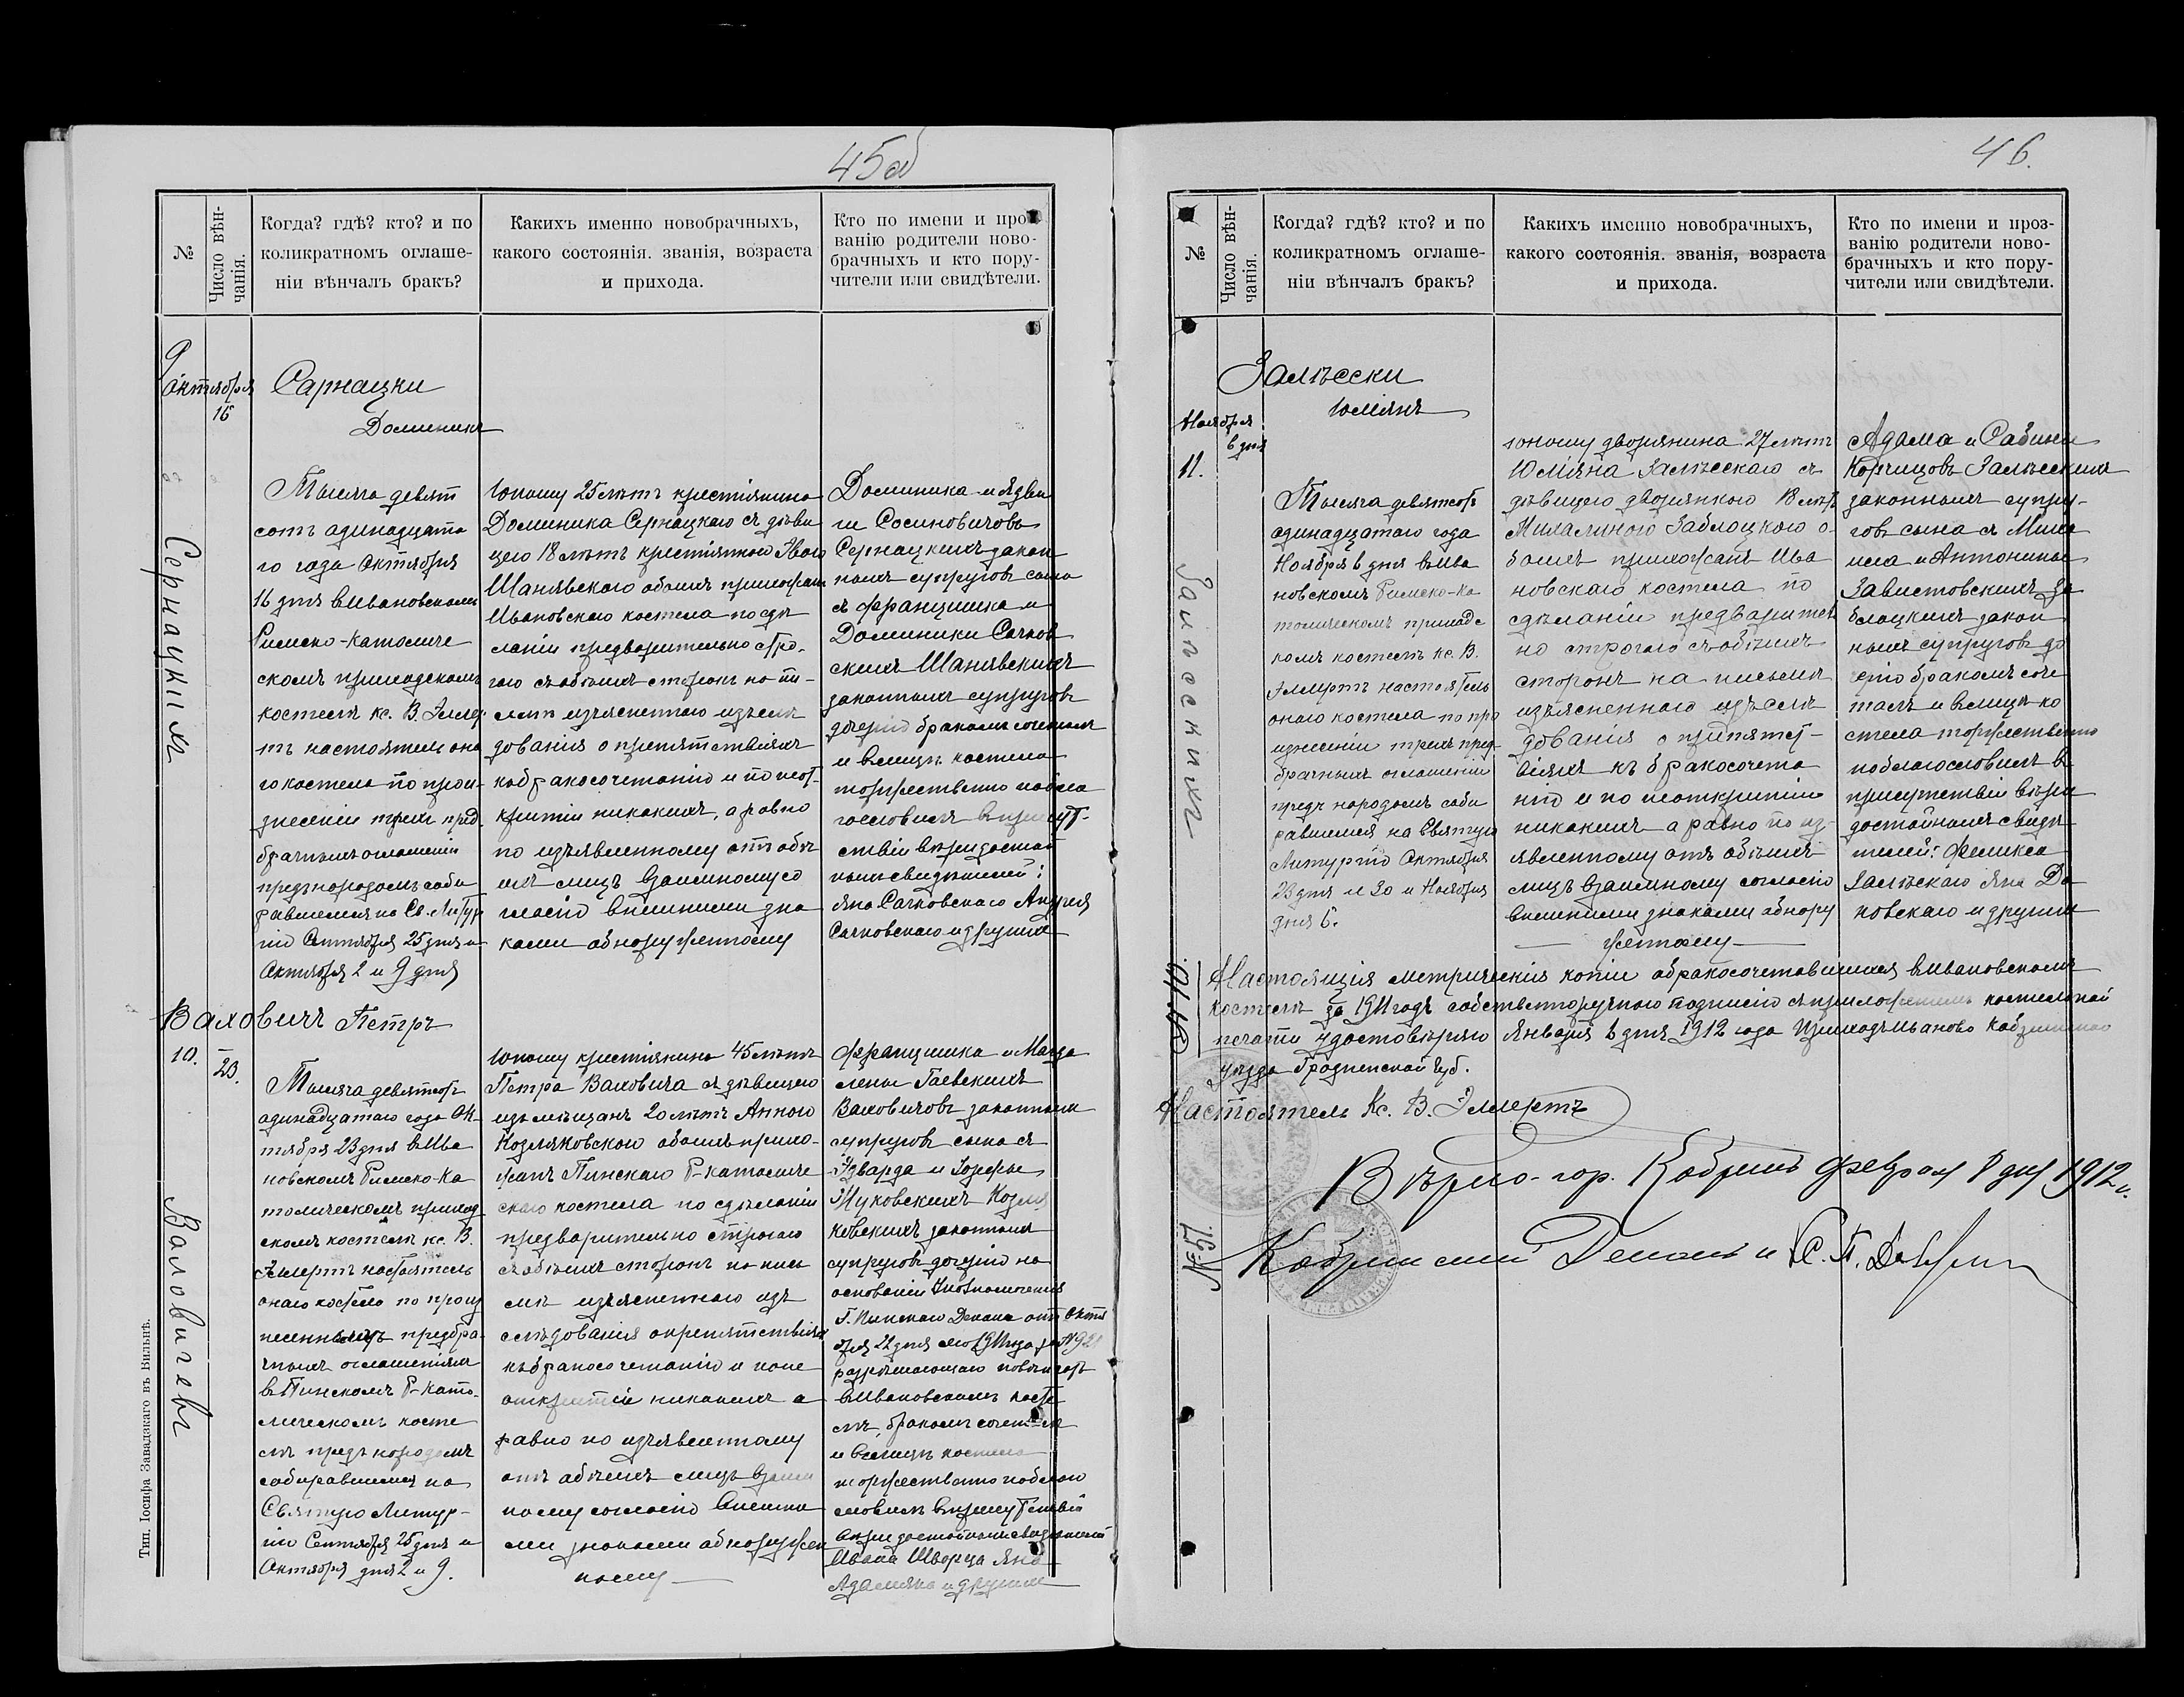 45об
№
Число вѣн-
чанія.
Когда? гдѣ? кто? и по
коликратномъ оглаше-
ніи вѣнчалъ бракъ?
Какихъ именно новобрачныхъ,
какого состоянія. званія, возраста
и прихода.
Кто по имени и проз-
ванію родители ново-
брачныхъ и кто пору-
чители или свидѣтели.
9
Октября
16
Сарнацки
Доминикъ
Сернацкимъ
Тысяча девят
сотъ одинадцата
го года Октября
16 дня въ Ивановскомъ
Римско-Католиче
скомъ приходскомъ
костелѣ кс. В. Эллер
тъ настоятель она
го костела по прои-
знесеніи трехъ пред-
брачныхъ оглашеній
предъ народомъ соби
равшемся на Св. Литур
гію Сентября 25 дня и
Октября 2 и 9 дня
Юношу 25 лѣтъ крестіянина
Доминика Сернацкаго съ дѣви
цею 18 лѣтъ крестіянкою Эвою
Шанявскою обоихъ прихожан
Ивановскаго костела по сдѣ
ланіи предварительно стро-
гаго съ обѣихъ сторонъ на пи-
смѣ изъясненнаго изслѣ
дованія о препятствіяхъ
къ бракосочетанію и по неот-
крытіи никакихъ, а равно
по изъявленному отъ обѣ
ихъ лицъ взаимному со
гласію внѣшними зна
ками обнаруженному
Доминика и Ядви
ги Сосиновичовъ
Сернацкихъ закон
ныхъ супруговъ сына
съ Францишка и
Доминики Сачков
скихъ Шанявскихъ
законныхъ супруговъ
дочерію бракомъ сочеталъ
и въ лицѣ костела
торжественно побла
гословилъ въ присут-
ствіи вѣридостой
ныхъ свидѣтелей:
Яна Сачковскаго Андрея
Сачковскаго и другихъ
Валовичъ Петръ
10.
23.
Валовичевъ
Тысяча девятсотъ
одинадцатаго года Ок-
тября 23 дня въ Ива
новскомъ Римско-Ка
толическомъ приход
скомъ костелѣ кс. В.
Эллертъ настоятель
онаго костела по произ
несеннымъ предбра-
чнымъ оглашеніямъ
въ Пинскомъ Р-Като-
лическомъ косте
лѣ предъ народомъ
собиравшемся на
Святую Литур-
гію Сентября 25 дня и
Октября дня 2 и 9.
Юношу крестіянина 45 лѣтъ
Петра Валовича съ дѣвицею
изъ мѣщанъ 20 лѣтъ Анною
Козляковскою обоихъ прихо-
жанъ Пинскаго Р-Католиче
скаго костела по сдѣланіи
предварительно строгаго
съ обѣихъ сторонъ на пись
мѣ изъясненнаго изъ
слѣдованія о препятствіяхъ
къ бракосочетанію и по не
открытіи никакихъ а
равно по изъявленному
отъ обѣихъ лицъ взаим
ному согласію внѣшни
ми знаками обнаружен
ному
Францишка и Магда
лены Гаевскихъ
Валовичовъ законныхъ
супруговъ сына съ
Эдварда и Зофіи
Жуковскихъ Козля
ковскихъ законныхъ
супруговъ дочерію на
основаніи
Г. Пинскаго Декана отъ Октя
бря 22 дня 1911 года за № 921
разрѣшающаго повѣнчать
въ Ивановскомъ косте
лѣ, бракомъ сочеталъ
и въ лицѣ костела
торжественно поблаго
словилъ въ присутствіи
вѣридостойныхъ свидѣтелей
Ивана Шворца Яна
Адамяка и другихъ
Тип. Іосифа Завадзкаго въ Вильнѣ.
46.
№
Число вѣн-
чанія.
Когда? гдѣ? кто? и по
коликратномъ оглаше-
ніи вѣнчалъ бракъ?
Какихъ именно новобрачныхъ,
какого состоянія. званія, возраста
и прихода.
Кто по имени и проз-
ванію родители ново-
брачныхъ и кто пору-
чители или свидѣтели.
Залѣсски
Юліянъ
Ноября
6 дня
11.
Залѣсскихъ
Тысяча девятсотъ
одинадцатаго года
Ноября 6 дня въ Ива
новскомъ Римско-Ка
толическомъ приходс
комъ костелѣ кс. В.
Эллертъ настоятель
онаго костела по про
изнесеніи трехъ пред-
брачныхъ оглашеній
предъ народомъ соби
равшемся на Святую
Литургію Октября
23 дня и 30 и Ноября
дня 6.
Юношу дворянина 27 лѣтъ
Юліяна Залѣсскаго съ
дѣвицею дворянкою 18 лѣтъ
Михалиною Заблоцкою о-
боихъ прихожанъ Ива
новскаго костела по
сдѣланіи предварител
но строгаго съ обѣихъ
сторонъ на письмѣ
изъясненнаго изъслѣ
дованія о припятст-
віяхъ къ бракосочета
нію и по неоткрытіи
никакихъ а равно по из-
явленному отъ обѣихъ
лицъ взаимному согласію
внѣшними знаками обнару
женному
Адама и Сабины
Корчицовъ Залѣсскихъ
законныхъ супру-
говъ сына съ Миха
ила и Антонины
Завистовскихъ За
блоцкихъ закон
ныхъ супруговъ до
черію бракомъ соче
талъ и въ лицѣ ко
стела торжественно
поблагословилъ въ
присутствіи вѣри
достойныхъ свидѣ
телей: Феликса
Залѣскаго Яна Да
новскаго и другихъ
Настоящія метрическія копіи обракосочетавшихся въ Ивановскомъ
костелѣ за 1911 годъ собственноручною подписію съ приложеніемъ костельной
печати удостовѣряю Января 6 дня 1912 года Приходъ Иваново Кобринскаго
уѣзда Гродненской Губ.
Настоятель Кс. В. Эллертъ
Вѣрно-гор. Кобринъ Февраля 8 дня 1912 г.
Кобринскій Деканъ